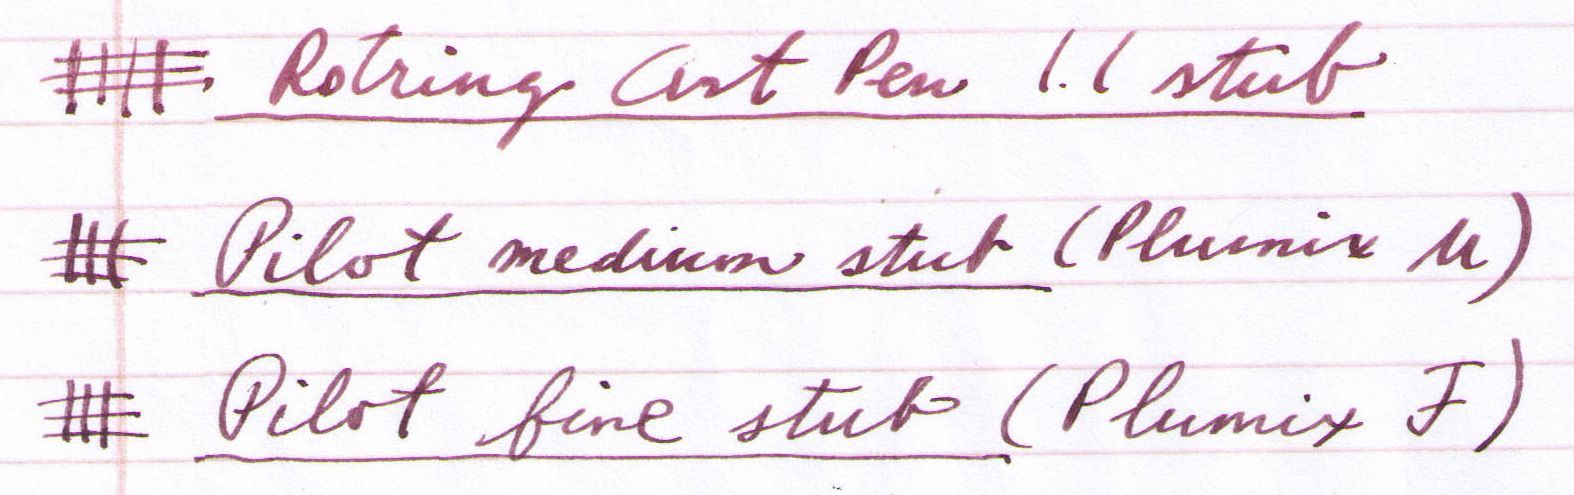 Rotring Art Pen 1.1 stub
Pilot medium stub (Plumix M)
Pilot fine stub (Plumix F)